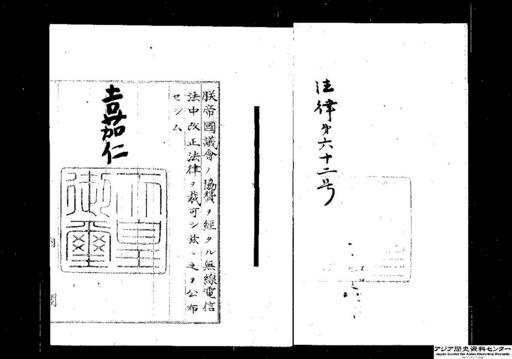 法律第六十二号
朕帝國議會ノ協賛ヲ經タル無線電信
法中改正法律ヲ裁可シ茲ニ之ヲ公布
セシム
嘉仁
天皇
御璽
アジア歴史資料センター
Japan Center for Asian Historical Records